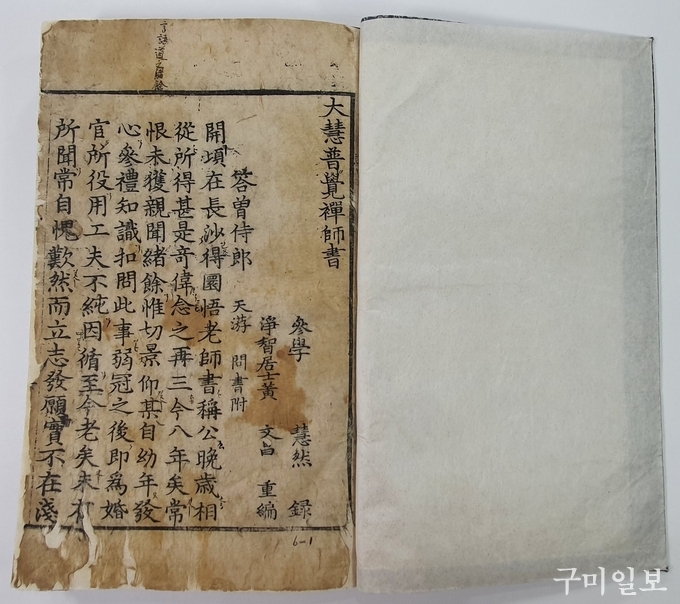 大慧普覺禪師書
參學 慧然 錄
淨智居士黃 文昌 重編
答曾侍郎 天游 問書附
開頃在長沙得圜悟老師書稱公晚歲相
從所得甚是竒偉念之再三今八年矣常
恨未獲親聞緖餘惟切景仰某自幼年發
心參禮知識扣問此事弱冠之後即爲婚
官所役用工夫不純因循至今老矣未有
所聞常自愧歎然而立志發願實不在淺
6-1
구미일보